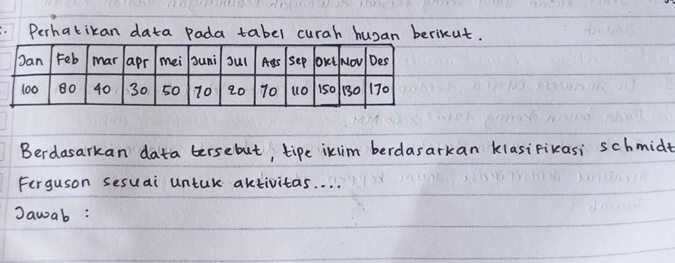 Perhatikan data pada tabel curah hujan berikut.
Jan Feb mar apr mei Juni Jul Ags Sep Okt Nov Des
100 80 40 30 50 70 20 70 110 150 130 170
Berdasarkan data tersebut, tipe iklim berdasarkan klasifikasi schmidt
Ferguson sesuai untuk aktivitas....
Jawab :